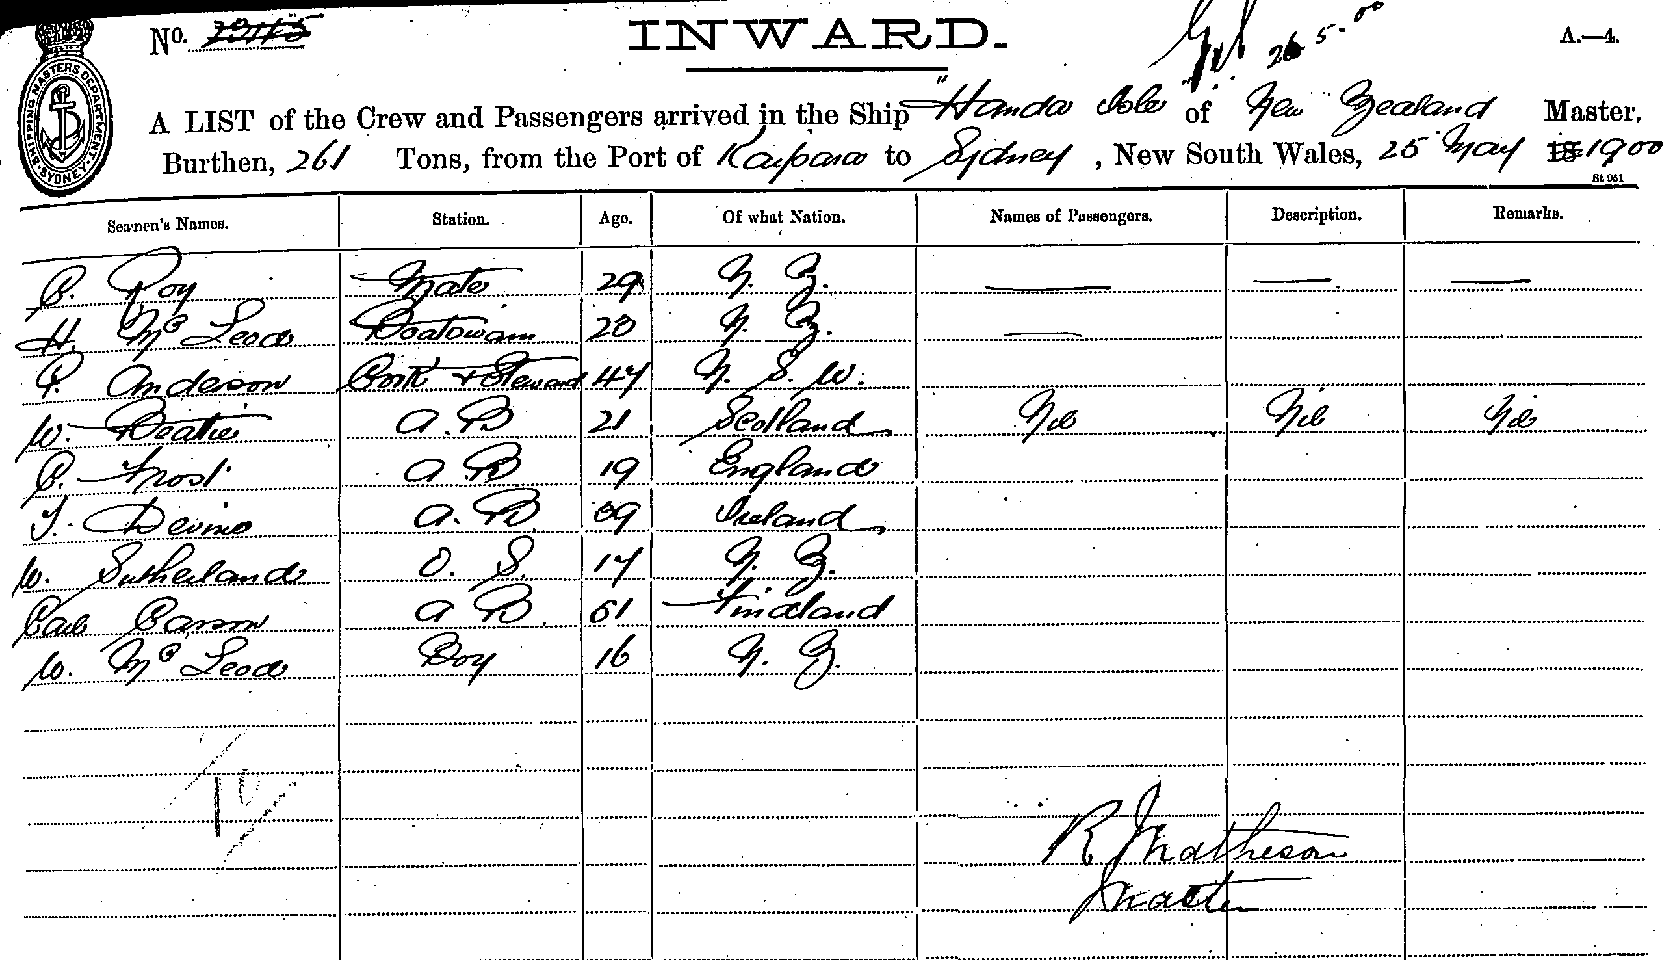 No. INWARD. 26 5.00 A.—4.
SHIPPING MASTERS DEPARTMENT SYDNEY
A LIST of the Crew and Passengers arrived in the Ship "Handa Isle of New Zealand Master,
Burthen, 261 Tons, from the Port of Kaipara to Sydney, New South Wales, 25 May 18 1900
St 961
Seamen's Names. Station. Age. Of what Nation. Names of Passengers. Description. Remarks.
C. Roy Mate 29 N. Z. — — —
H. McLeod Boatswain 20 N. Z. —
P. Anderson Cook & Steward 47 N. S. W.
W. Beatie A.B 21 Scotland Nil Nil Nil
C. Frost A B. 19 England
T. Devine A. B 09 Ireland
W. Sutherland O. S. 17 N. Z.
Carl Carson A B. 61 Finland
W. McLeod Boy 16 N. Z.
10
R Matheson
Master